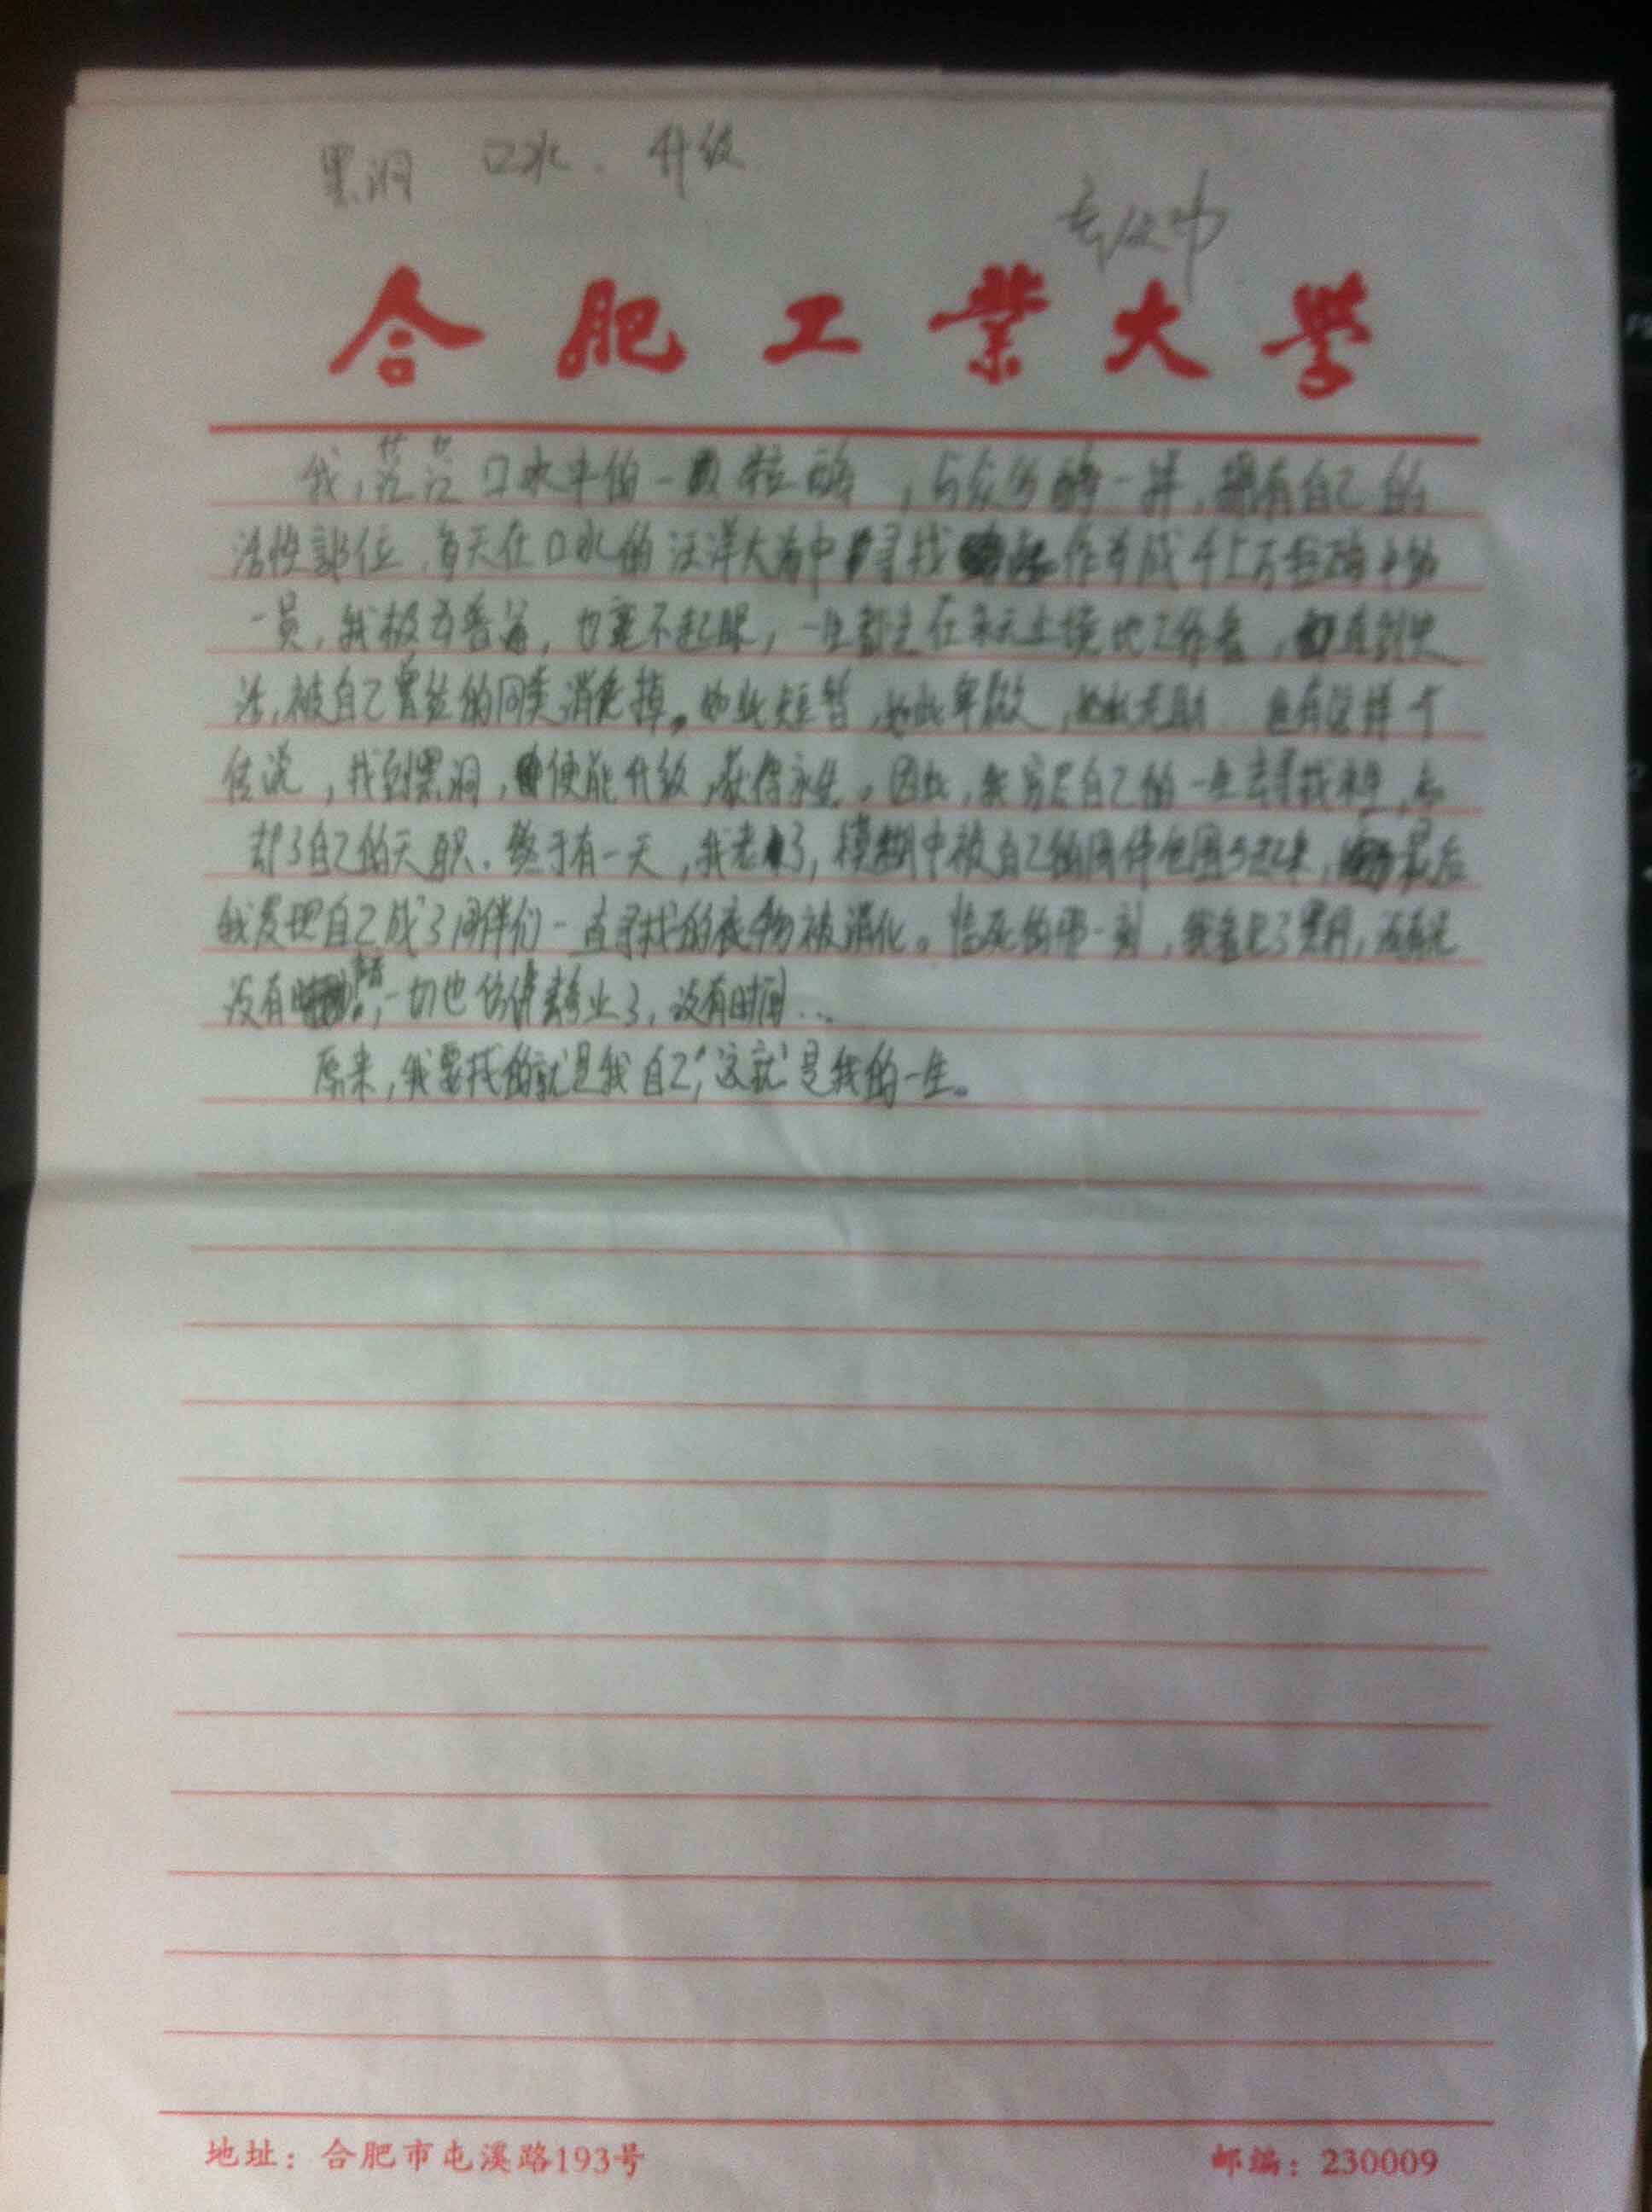 黑洞 口水. 升级.
合肥工业大学
我,茫茫口水中的一粒酶,与众多酶一样,拥有自己的
活性部位,每天在口水的汪洋大海中寻找 作为成千上万 酶中的
一员,我极为普通,也毫不起眼,一生都 在 地工作着,直到失
活,被自己曾经的同类消化掉。如此短暂,如此卑微,如此无助 有这样一个
传说,找到黑洞,便能升级,获得永生。因此,我穷尽自己的一生去寻找
却了自己的天职.终于有一天,我老了,模糊中被自己的同伴包围了起来,最后
我发现自己成了同伴们一直寻找的食物被消化。临死的那一刻,我看见了黑洞,
没有 ,一切也仿佛静止了,没有时间...
原来,我要找的就是我自己,这就是我的一生。
地址:合肥市屯溪路193号 邮编:230009